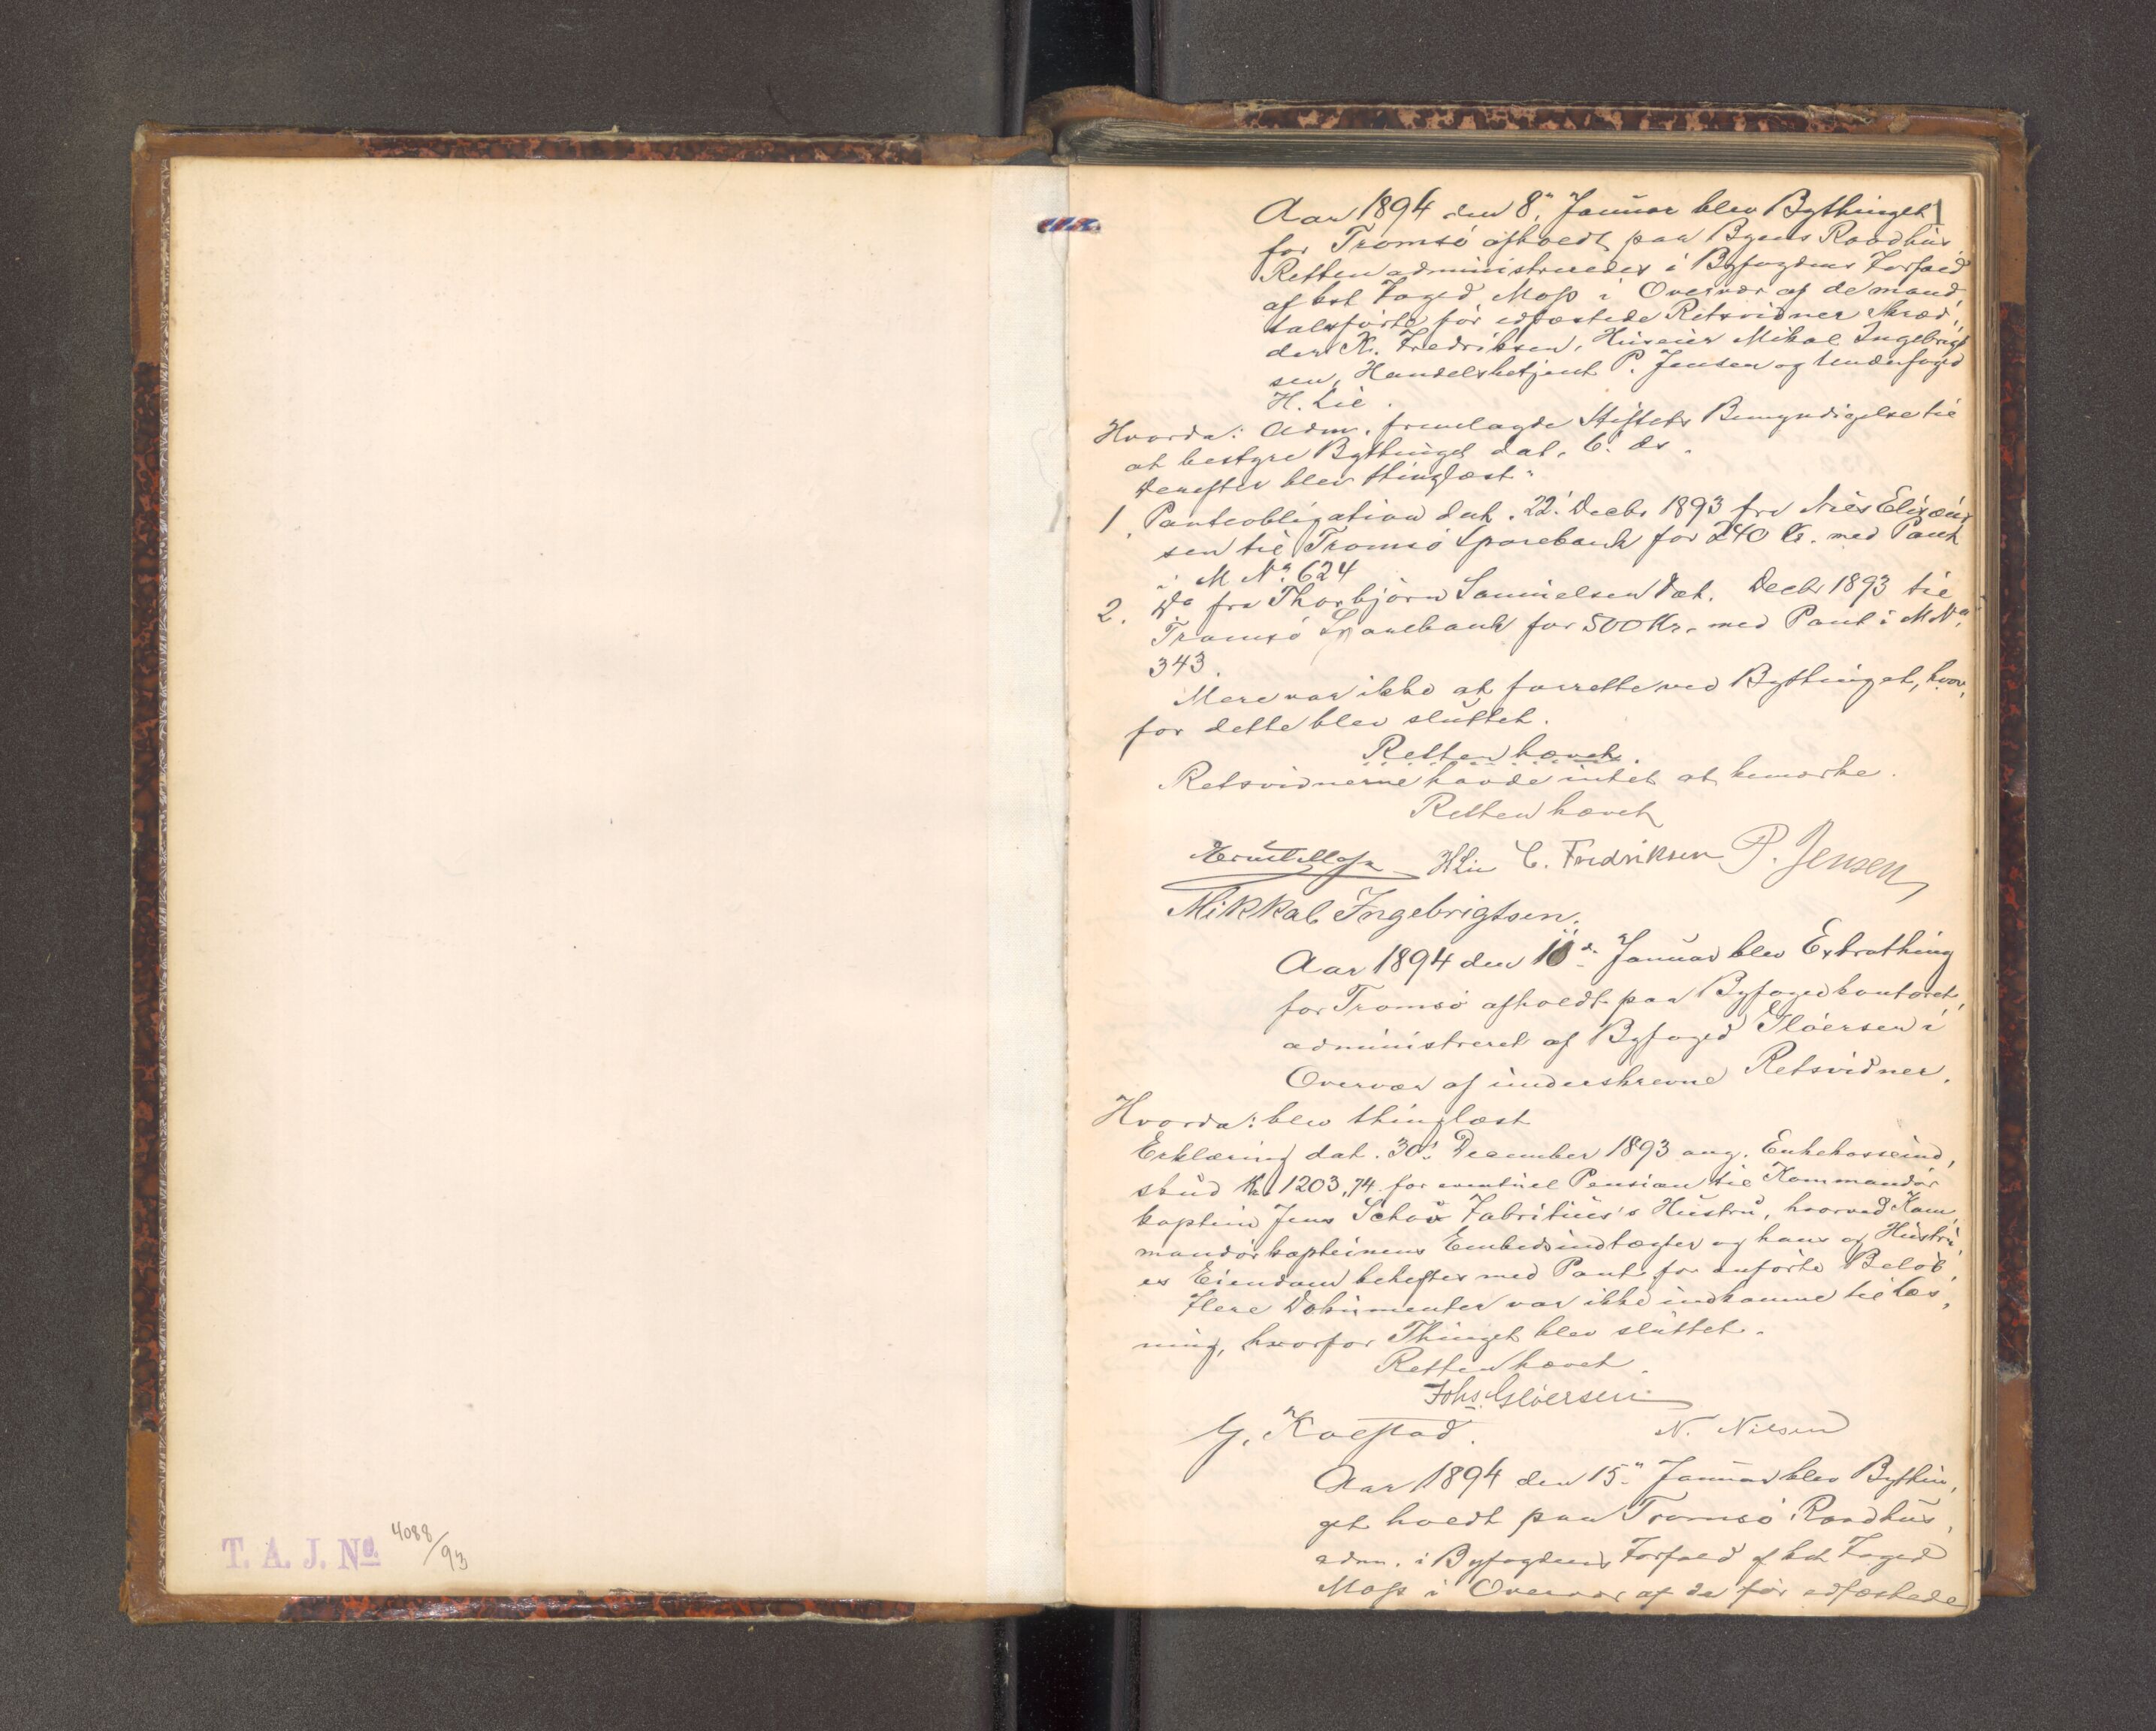 T. A. J. No. 4088/93
1
Aar 1894 den 8. Januar blev Bythinget
for Tromsö afholdt paa Byens Raadhus.
Retten administreredes i Byfogdens Forfald
af kst Foged Moss i Overvær af de mand,
talsførte før edfæstede Retsvidner Skræd,
der K. Fredriksen, Huseier Mikal Ingebrigt
sen, Handelsbetjent P. Jensen og Underfoged
H. Lie.
Hvorda: Adm. fremlagde Stiftets Bemyndigelse til
at bestyre Bythinget dat. 6. ds.
Derefter blev thinglæst:
1. Panteobligation dat. 22. Decbr 1893 fra Nils Eliæus
sen til Tromsö Sparebank for 240 Kr. med Pant
i M No. 624
2. Do fra Thorbjörn Samuelsen dat. Decbr 1893 til
Tromsö Sparebank for 500 Kr. med Pant i M No.
343.
Mere var ikke at forrette ved Bythinget, hvor,
for dette blev sluttet.
Retten hævet.
Retsvidnerne havde intet at bemærke.
Retten hævet
Moss HLie C. Fredriksen P. Jensen
Mikkal Ingebrigtsen.
Aar 1894 den Januar blev Extrathing
for Tromsö afholdt paa Byfogedkontoret,
administreret af Byfoged Gløersen i
Overvær af underskrevne Retsvidner.
Hvorda: blev thinglæst
Erklæring dat. 30. December 1893 ang. Enkekasseind,
skud Kr 1203,74 for eventuel Pension til Kommandör
kaptein Jens Schou Fabritius's Hustru, hvorved Kom,
mandörkapteinens Embedsindtægter og hans og Hustru,
es Eiendom behæftes med Pant for anførte Beløb.
Flere Dokumenter var ikke indkomne til Læs,
ning, hvorfor Thinget blev sluttet.
Retten hævet.
Johs. Gløersen
G. Kolstad. N. Nilsen
Aar 1894 den 15. Januar blev Bythin,
get holdt paa Tromsö Raadhus,
adm. i Byfogdens Forfald af kst Foged
Moss i Overvær af de før edfæstede